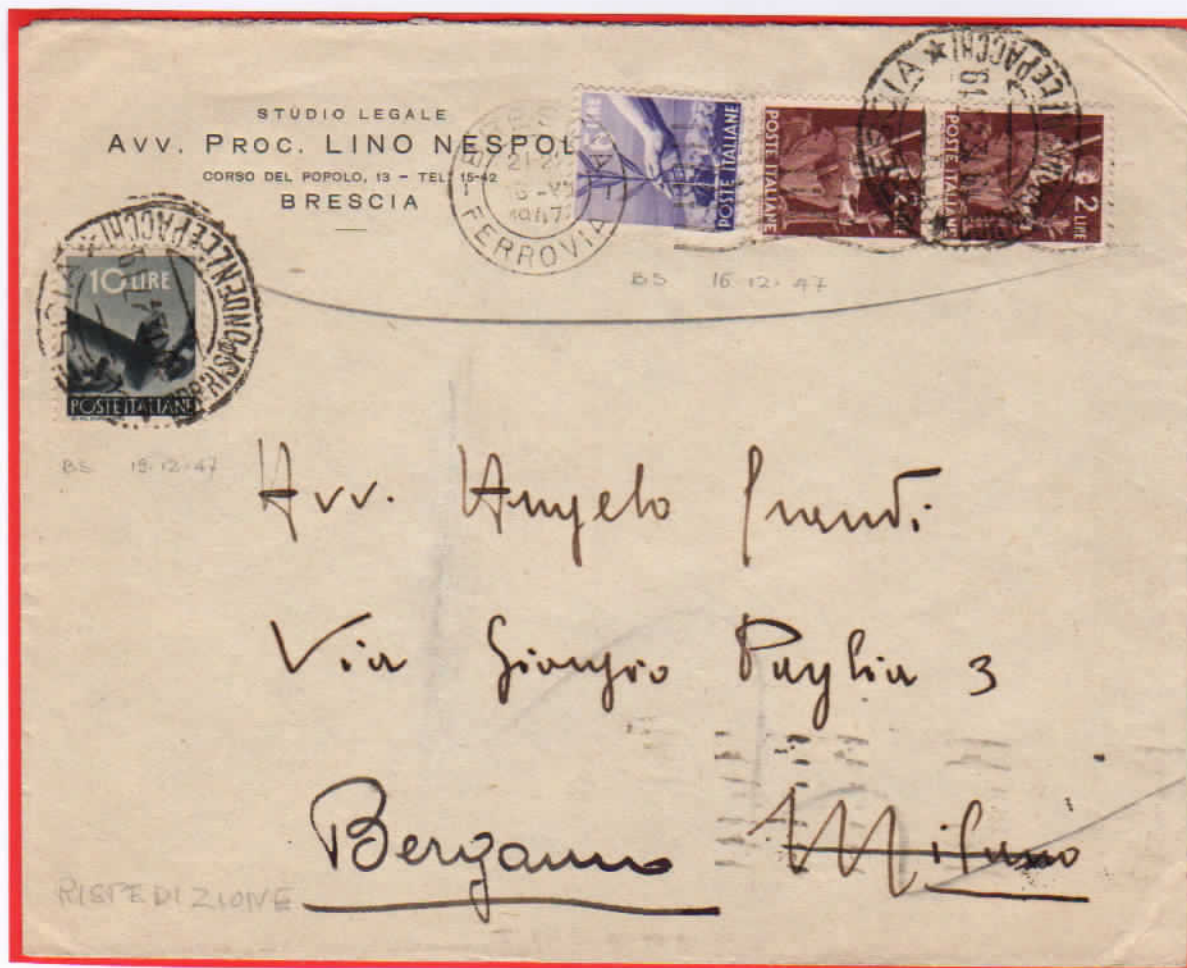 STUDIO LEGALE
AVV. PROC. LINO NESPOL
CORSO DEL POPOLO, 13 - TEL. 15-42
BRESCIA
FERROVIA
1947
POSTE ITALIANE
POSTE ITALIANE
POSTE ITALIANE
2 LIRE
BS 16.12.47
10 LIRE
POSTE ITALIANE
BS 19.12.47
Avv. Angelo Grandi
Via Giorgio Paglia 3
Bergamo Milano
RISPEDIZIONE